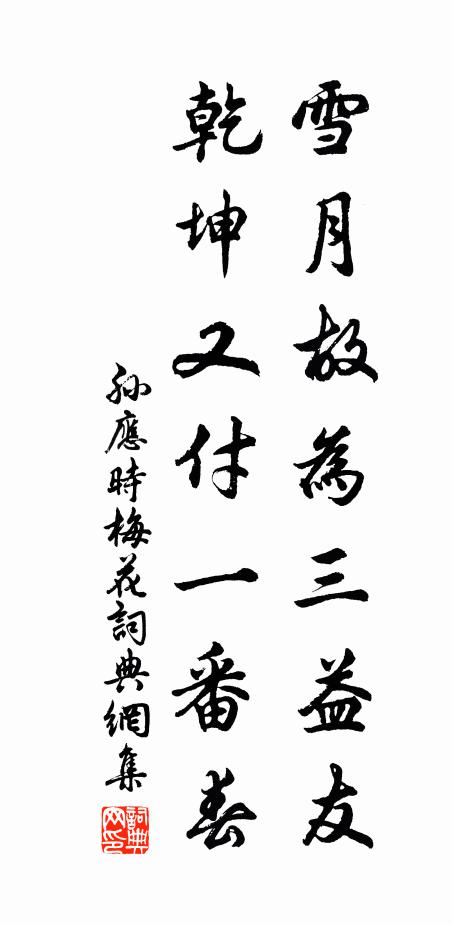 雪月故為三益友
乾坤又付一番春
孫應時梅花詞典網集
詞典網印